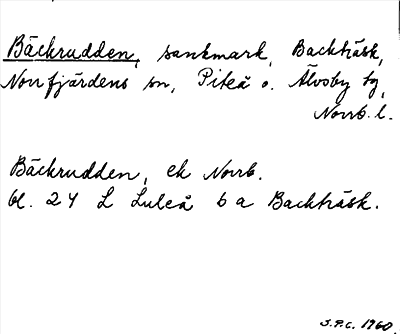 Bäckrudden, sankmark, Backträsk,
Norrfjärdens sn, Piteå o. Älvsby tg,
Norrb. l.
Bäckrudden, ek Norrb.
bl. 24 L Luleå 6 a Backträsk.
J.P.C. 1960.